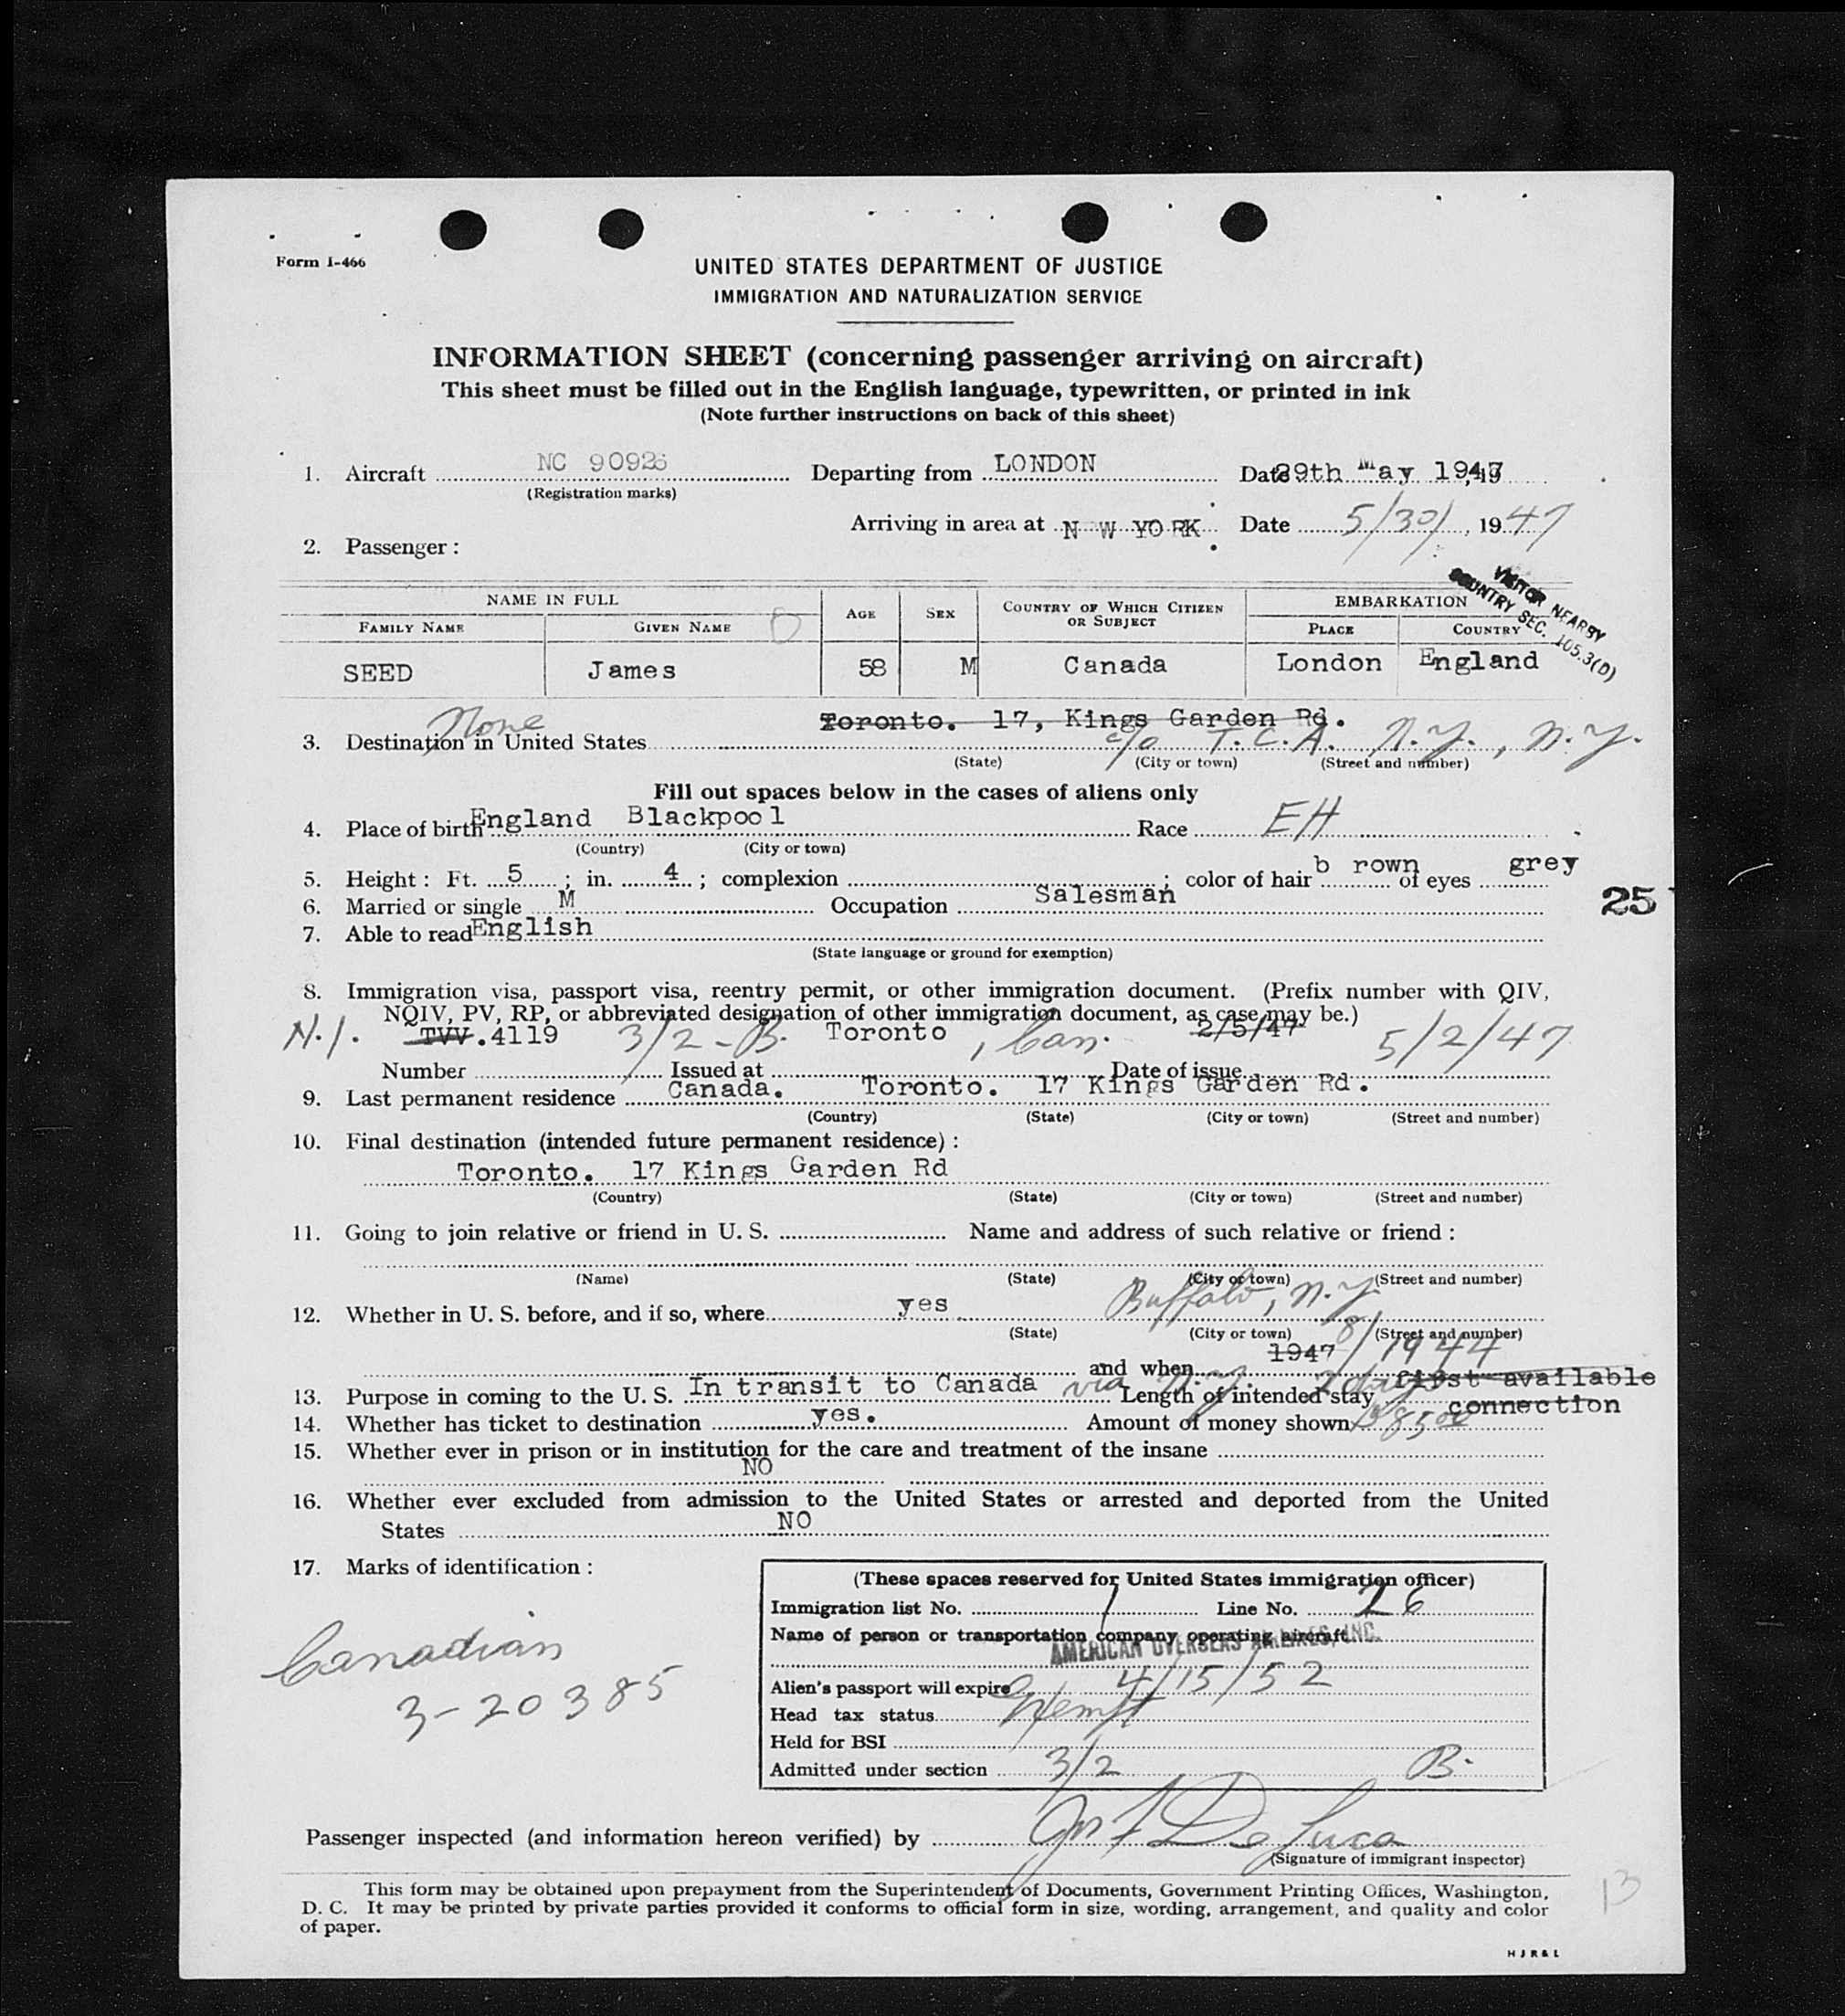 Form I-466
UNITED STATES DEPARTMENT OF JUSTICE
IMMIGRATION AND NATURALIZATION SERVICE
INFORMATION SHEET (concerning passenger arriving on aircraft)
This sheet must be filled out in the English language, typewritten, or printed in ink
(Note further instructions on back of this sheet)
1. Aircraft NC 90926 Departing from LONDON Date 29th May 1947
(Registration marks)
Arriving in area at N W YORK Date 5/30/, 1947
2. Passenger:
VISITOR NEARBY
COUNTRY SEC. 105.3(D)
NAME IN FULL AGE SEX COUNTRY OF WHICH CITIZEN OR SUBJECT EMBARKATION
FAMILY NAME GIVEN NAME PLACE COUNTRY
SEED James 58 M Canada London England
None Toronto. 17, Kings Garden Rd.
3. Destination in United States c/o T.C.A. N.Y., N.Y.
(State) (City or town) (Street and number)
Fill out spaces below in the cases of aliens only
4. Place of birth England Blackpool Race EH
(Country) (City or town)
5. Height: Ft. 5; in. 4; complexion ; color of hair b rown of eyes grey
6. Married or single M Occupation Salesman
25
7. Able to read English
(State language or ground for exemption)
8. Immigration visa, passport visa, reentry permit, or other immigration document. (Prefix number with QIV,
NQIV, PV, RP, or abbreviated designation of other immigration document, as case may be.)
N.I. TVV.4119 3/2-B. Toronto, Can. 2/5/47 5/2/47
Number Issued at Date of issue
9. Last permanent residence Canada. Toronto. 17 Kings Garden Rd.
(Country) (State) (City or town) (Street and number)
10. Final destination (intended future permanent residence):
Toronto. 17 Kings Garden Rd
(Country) (State) (City or town) (Street and number)
11. Going to join relative or friend in U. S. Name and address of such relative or friend:
(Name) (State) (City or town) (Street and number)
12. Whether in U. S. before, and if so, where yes Buffalo, N.Y.
(State) (City or town) (Street and number)
and when 1947 8/1944
13. Purpose in coming to the U. S. In transit to Canada via N.Y. Length of intended stay 2 days first available
connection
14. Whether has ticket to destination yes. Amount of money shown $85.00
15. Whether ever in prison or in institution for the care and treatment of the insane
NO
16. Whether ever excluded from admission to the United States or arrested and deported from the United
States NO
17. Marks of identification:
Canadian
3-20385
(These spaces reserved for United States immigration officer)
Immigration list No. 1 Line No. 26
Name of person or transportation company operating aircraft
AMERICAN OVERSEAS AIRLINES, INC.
Alien's passport will expire 4/15/52
Head tax status Exempt
Held for BSI
Admitted under section 3/2 B.
Passenger inspected (and information hereon verified) by Jos F De Luca
(Signature of immigrant inspector)
This form may be obtained upon prepayment from the Superintendent of Documents, Government Printing Offices, Washington,
D. C. It may be printed by private parties provided it conforms to official form in size, wording, arrangement, and quality and color
of paper.
13
H J R & L